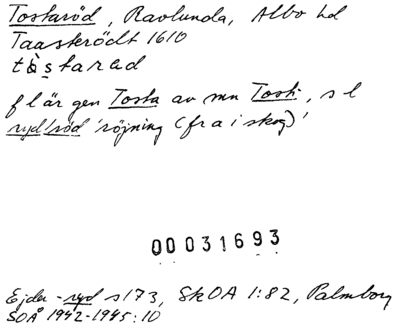 Tostaröd, Ravlunda, Albo hd
Taaskrödt 1610
tòstarad
f l är gen Tosta av mn Toste, s l
ryd/röd 'röjning (fra i skog)'
00031693
Ejder - ryd s 173, SkOA 1:82, Palmborg
SOÅ 1942-1945:10